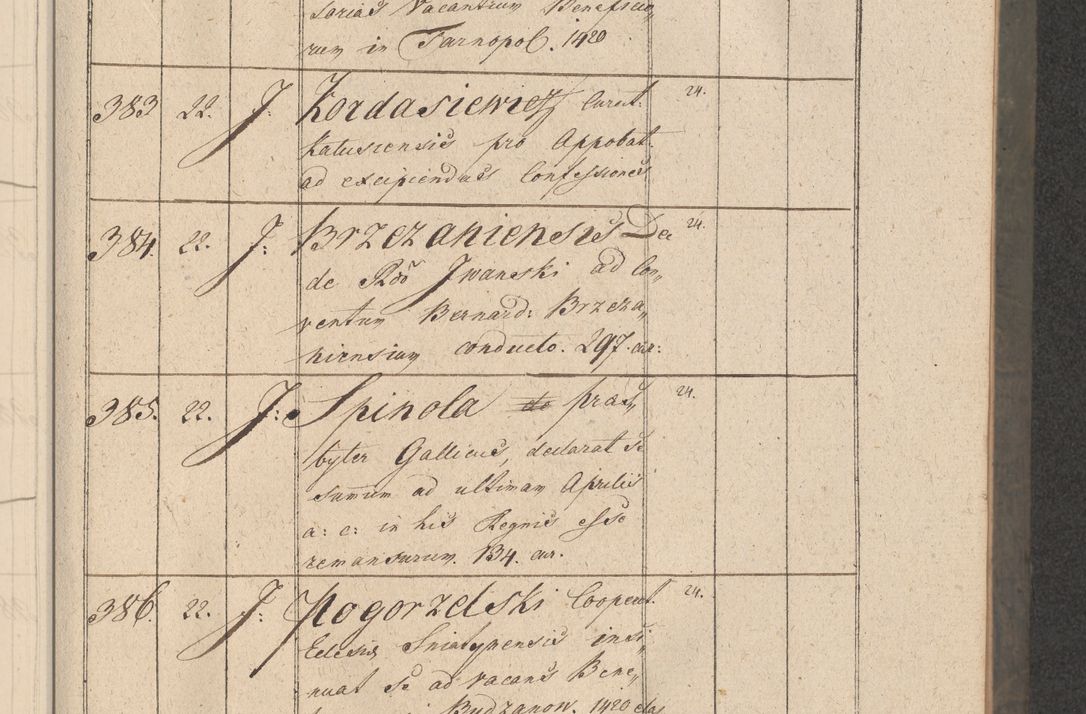 sorias Vacantium Beneficio„
rum in Tarnopol. 1420
383 22. J: Kordasiewicz Curat. 24.
Katusiensis pro Approbat.
ad excipiendas Confessiones
384. 22. J: Brzezaniensis Dec 24.
de Rdo Jwanski ad Con„
ventum Bernard: Brzeza„
niensium conducto. 297. cur:
385. 22. J: Spinola praes„ 24.
byter Gallicus, declarat se
summum ad ultimam Aprilis
a: c: in his Regnis esse
remansurum. 134. cur.
386. 22. J: Pogorzelski Cooperat. 24.
Eclesia Sniatynensis insi„
nuat se ad vacans Bene„
Budzanow. 1420